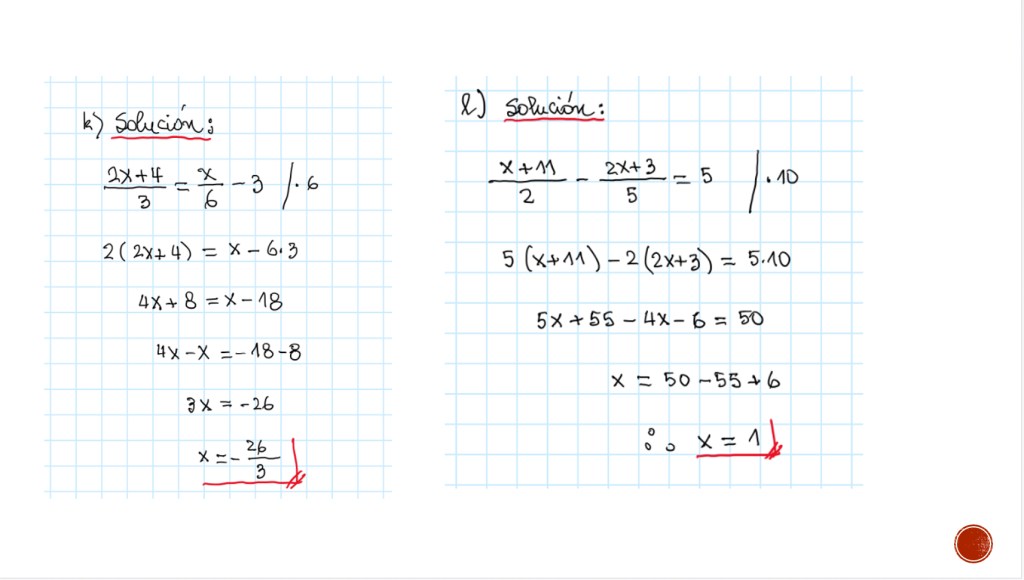 k) Solución:
(2x+4)/3 = x/6 - 3 /·6
2(2x+4) = x - 6·3
4x + 8 = x - 18
4x - x = -18 - 8
3x = -26
x = -26/3
l) Solución:
(x+11)/2 - (2x+3)/5 = 5 /·10
5(x+11) - 2(2x+3) = 5·10
5x + 55 - 4x - 6 = 50
x = 50 - 55 + 6
∴ x = 1